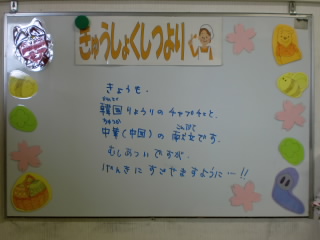 きゅうしょくしつより
きょうも、
韓国りょうりのチャプチェと、
中華(中国)の
です。
むしあついですが、
げんきにすごせますように…!!